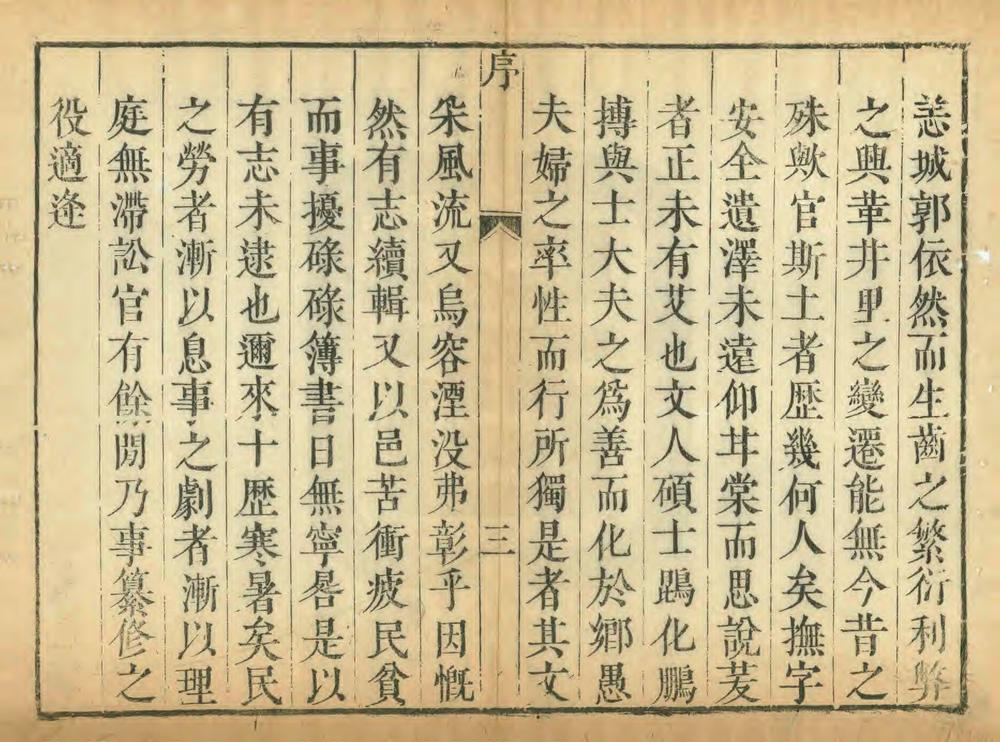 恙城郭依然而生齒之繁衍利弊
之興革井里之變遷能無今昔之
殊歟官斯土者歷幾何人矣撫字
安全遺澤未遠仰甘棠而思說茇
者正未有艾也文人碩士鵾化鵬
摶與士大夫之為善而化於鄉愚
夫婦之率性而行所獨是者其文
序
三
采風流又烏容湮没弗彰乎因慨
然有志續輯又以邑苦衝疲民貧
而事擾碌碌簿書日無寧晷是以
有志未逮也邇來十歷寒暑矣民
之勞者漸以息事之劇者漸以理
庭無滯訟官有餘閒乃事纂修之
役適逢